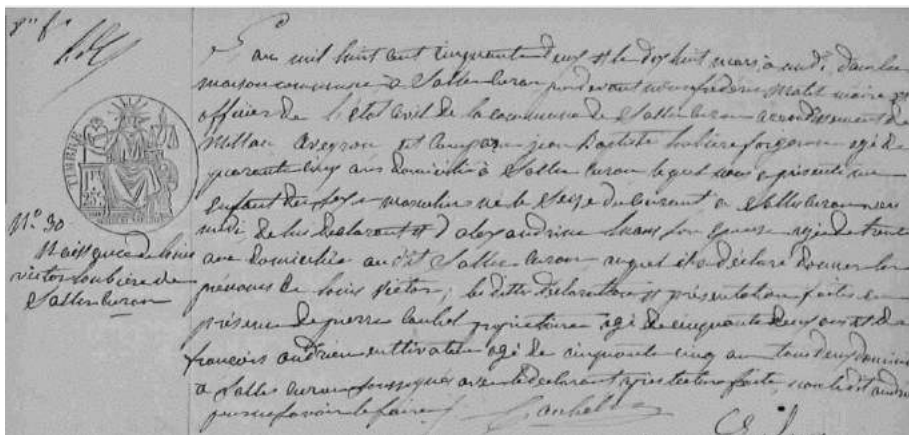 TIMBRE
N° 30
Naissance de Louis
Victor Loubière de
Salles Curan
L'an mil huit cent cinquante deux et le dix huit mars à midi, dans la
maison commune de Salles Curan pardevant nous frédéric Malet maire et
officier de l'état civil de la commune de Salles Curan arrondissement de
Millau Aveyron est comparu jean Baptiste Loubière forgeron agé de
quarante cinq ans domicilié à Salles Curan lequel nous a présenté un
enfant du sexe masculin né le seize du courant à Salles Curan
midi de lui déclarant et d'alexandrine son épouse agée de trente
ans domiciliée audit Salles Curan auquel il a déclaré donner les
prénoms de Louis Victor; les dittes déclaration et présentation faites en
présence de pierre Caubel propriétaire agé de cinquante deux ans et de
françois andrieu cultivateur agé de cinquante cinq ans tous deux
à Salles Curan soussignés avec le déclarant après lecture faite, non ledit andrieu
pour ne savoir le faire
Caubel